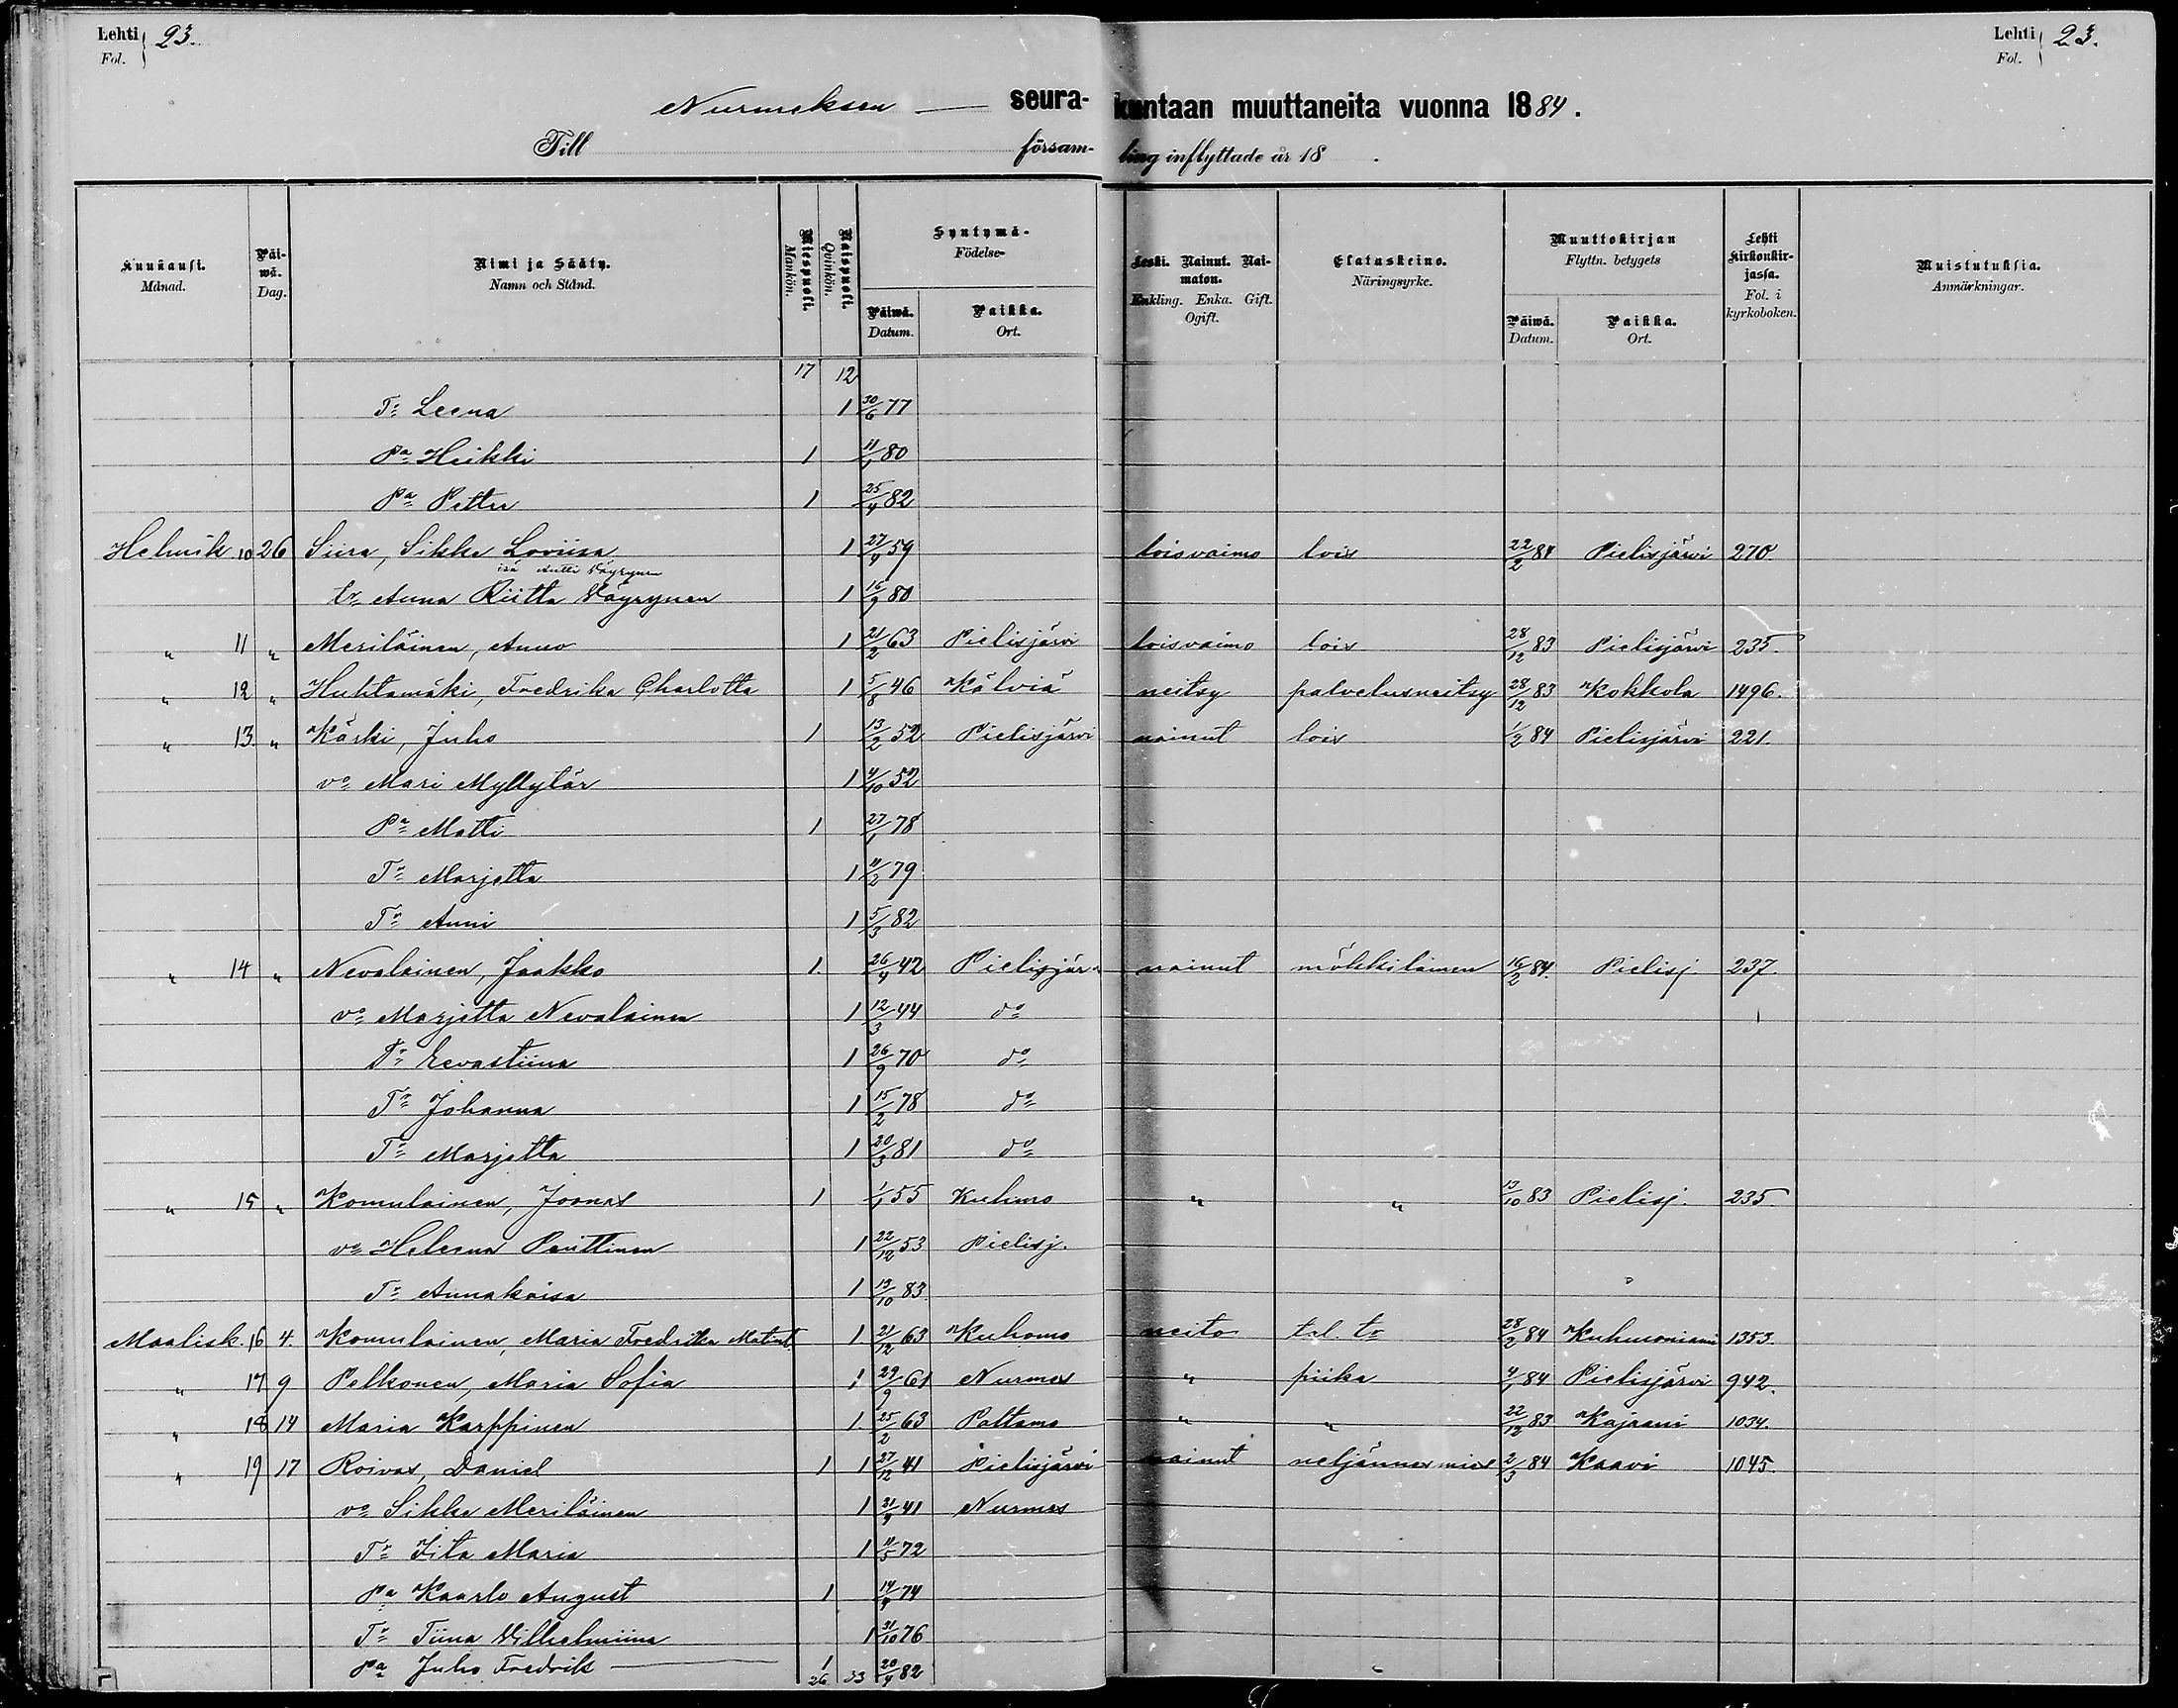 Lehti Fol. 23. Lehti Fol. 23.
Nurmeksen seura- kuntaan muuttaneita vuonna 1884.
Till församling inflyttade år 18 .
Kuukausi. Månad. Päiwä. Dag. Nimi ja Sääty. Namn och Stånd. Miespuoli. Mankön. Naispuoli. Qvinkön. Syntymä- Födelse- Päiwä. Datum. Paikka. Ort. Leski. Nainut. Naimaton. Enkling. Enka. Gift. Ogift. Elatuskeino. Näringsyrke. Muuttokirjan Flyttn. betygets Päiwä. Datum. Paikka. Ort. Lehti Kirkonkirjassa. Fol. i kyrkoboken. Muistutuksia. Anmärkningar.
17 12
Tr Leena 1 30/6 77
Pa Heikki 1 11/1 80
Pa Petter 1 25/4 82
Helmik. 10 26 Siira, Sikke Loviisa 1 27/4 59 loisvaimo lois 22/2 84 Pielisjärvi 270.
isä Antti Väyrynen
tr Anna Riitta Väyrynen 1 16/9 80
" 11 " Meriläinen, Anna 1 21/2 63 Pielisjärvi loisvaimo lois 28/12 83 Pielisjärvi 235.
" 12 " Huhtamäki, Fredrika Charlotta 1 5/8 46 Kälviä neitsy palvelusneitsy 28/12 83 Kokkola 1496.
" 13. " Kärki, Juho 1 13/2 52 Pielisjärvi nainut lois 1/2 84 Pielisjärvi 221.
vo Mari Myllylär 1 4/10 52
Pa Matti 1 27/1 78
Tr Marjetta 1 11/2 79
Tr Anni 1 5/3 82
" 14 " Nevalainen, Jaakko 1. 26/4 42 Pielisjär nainut mökkiläinen 16/2 84. Pielisj. 237.
vo Marjetta Nevalainen 1 12/3 44 do
Tr Eevastiina 1 26/9 70 do
Tr Johanna 1 15/2 78 do
Tr Marjetta 1 20/3 81 do
" 15 " Komulainen, Joonas 1 1/1 55 Kuhmo " " 13/10 83 Pielisj. 235.
vo Heleena Puittinen 1 22/12 53 Pielisj.
Tr Annakaisa 1 13/10 83.
Maalisk. 16 4. Komulainen, Maria Fredrika Matint 1 21/12 63 Kuhomo neito tal. tr 28/2 84 Kuhmoniemi 1353.
" 17 9 Pelkonen, Maria Sofia 1 29/9 61 Nurmes " piika 4/1 84 Pielisjärvi 942.
" 18 14 Maria Karppinen 1. 25/2 63 Paltamo " " 22/12 83 Kajaani 1034.
" 19 17 Roivas, Daniel 1 1 27/12 41 Pielisjärvi nainut neljännes mies 2/3 84 Kaavi 1045.
vo Sikke Meriläinen 1 21/4 41 Nurmes
Tr Iita Maria 1 11/5 72
Pa Kaarlo August 1 14/4 74
Tr Tiina Vilhelmiina 1 31/10 76
Pa Juho Fredrik 1 20/4 82
26 33